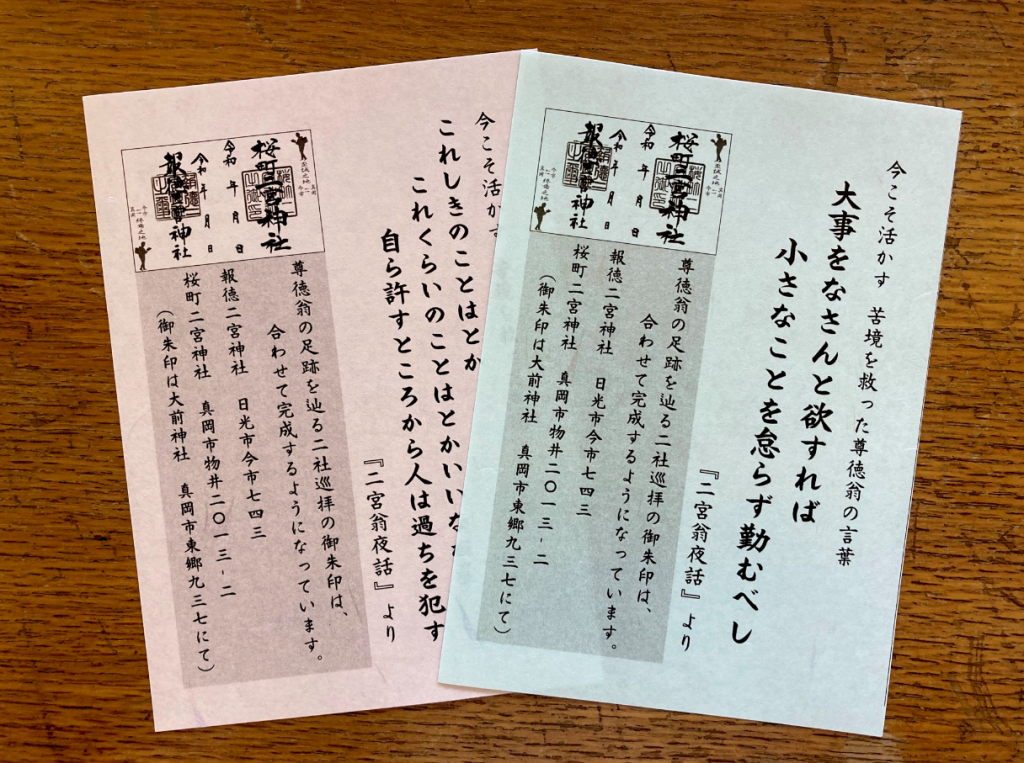 今こそ活かす 苦境を救った尊徳翁の言葉
大事をなさんと欲すれば
小さなことを怠らず勤むべし
『二宮翁夜話』より
桜町二宮神社
令和 年 月 日
令和 年 月 日
報徳二宮神社
尊徳翁の足跡を辿る二社巡拝の御朱印は、
合わせて完成するようになっています。
報徳二宮神社 日光市今市七四三
桜町二宮神社 真岡市物井二〇一三-二
(御朱印は大前神社 真岡市東郷九三七にて)
今こそ活かす
これしきのことはとか
これくらいのことはとかいいな
自ら許すところから人は過ちを犯す
『二宮翁夜話』より
桜町二宮神社
令和 年 月 日
令和 年 月 日
報徳二宮神社
尊徳翁の足跡を辿る二社巡拝の御朱印は、
合わせて完成するようになっています。
報徳二宮神社 日光市今市七四三
桜町二宮神社 真岡市物井二〇一三-二
(御朱印は大前神社 真岡市東郷九三七にて)